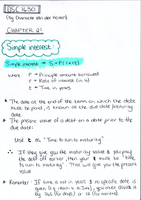 DSC 1630
(By Charmaine van der Heever)
CHAPTER 2:
Simple interest:
Simple interest → S = P(1+rt)
where P = Principle amount borrowed
r = Rate of interest (in %)
t = Time in years
* The date at the end of the term on which the debt must be paid, is known as the due date
* The present value of a debt on a date prior to the due date:
Let t = "Time to run to maturity"
∴ If they give you the maturity value & you pay the debt off earlier, then your t must be "time to run to maturity". This will give you the present value
* Remember: If time is not in years & a specific date is given (e.g. Mar – 5 Jun), you must divide it by 365 (for days) or 12 (for months)